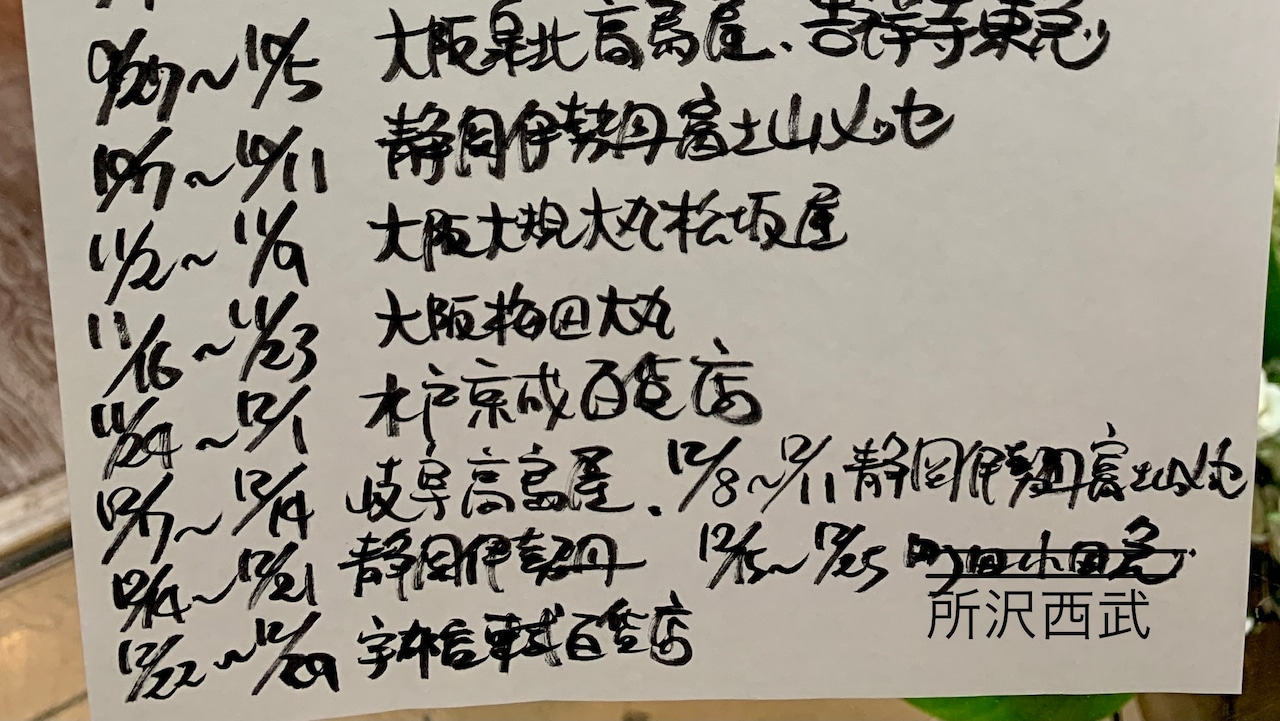 9/29〜10/5 大阪泉北高島屋、吉祥寺東急
10/7〜10/11 静岡伊勢丹富士山メッセ
11/2〜11/9 大阪大規大丸松坂屋
11/16〜11/23 大阪梅田大丸
11/24〜12/1 水戸京成百貨店
12/7〜12/14 岐阜高島屋、12/8〜12/11 静岡伊勢丹富士山メッセ
12/14〜12/21 静岡伊勢丹 12/15〜12/25 町田小田急
所沢西武
12/22〜12/29 宇都宮東武百貨店